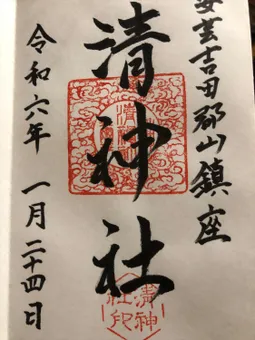 安芸吉田郡山鎮座
清神社
令和六年 一月二十四日
清神
社印